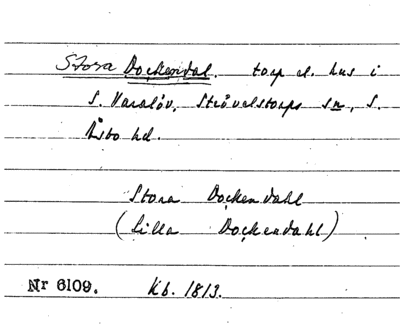 Stora Dockendal. torp el. hus i
S. Varalöv, Strövelstorps sn, S.
Åsbo hd.
Stora Dockendahl
(Lilla Dockendahl)
Nr 6109. Kb. 1813.